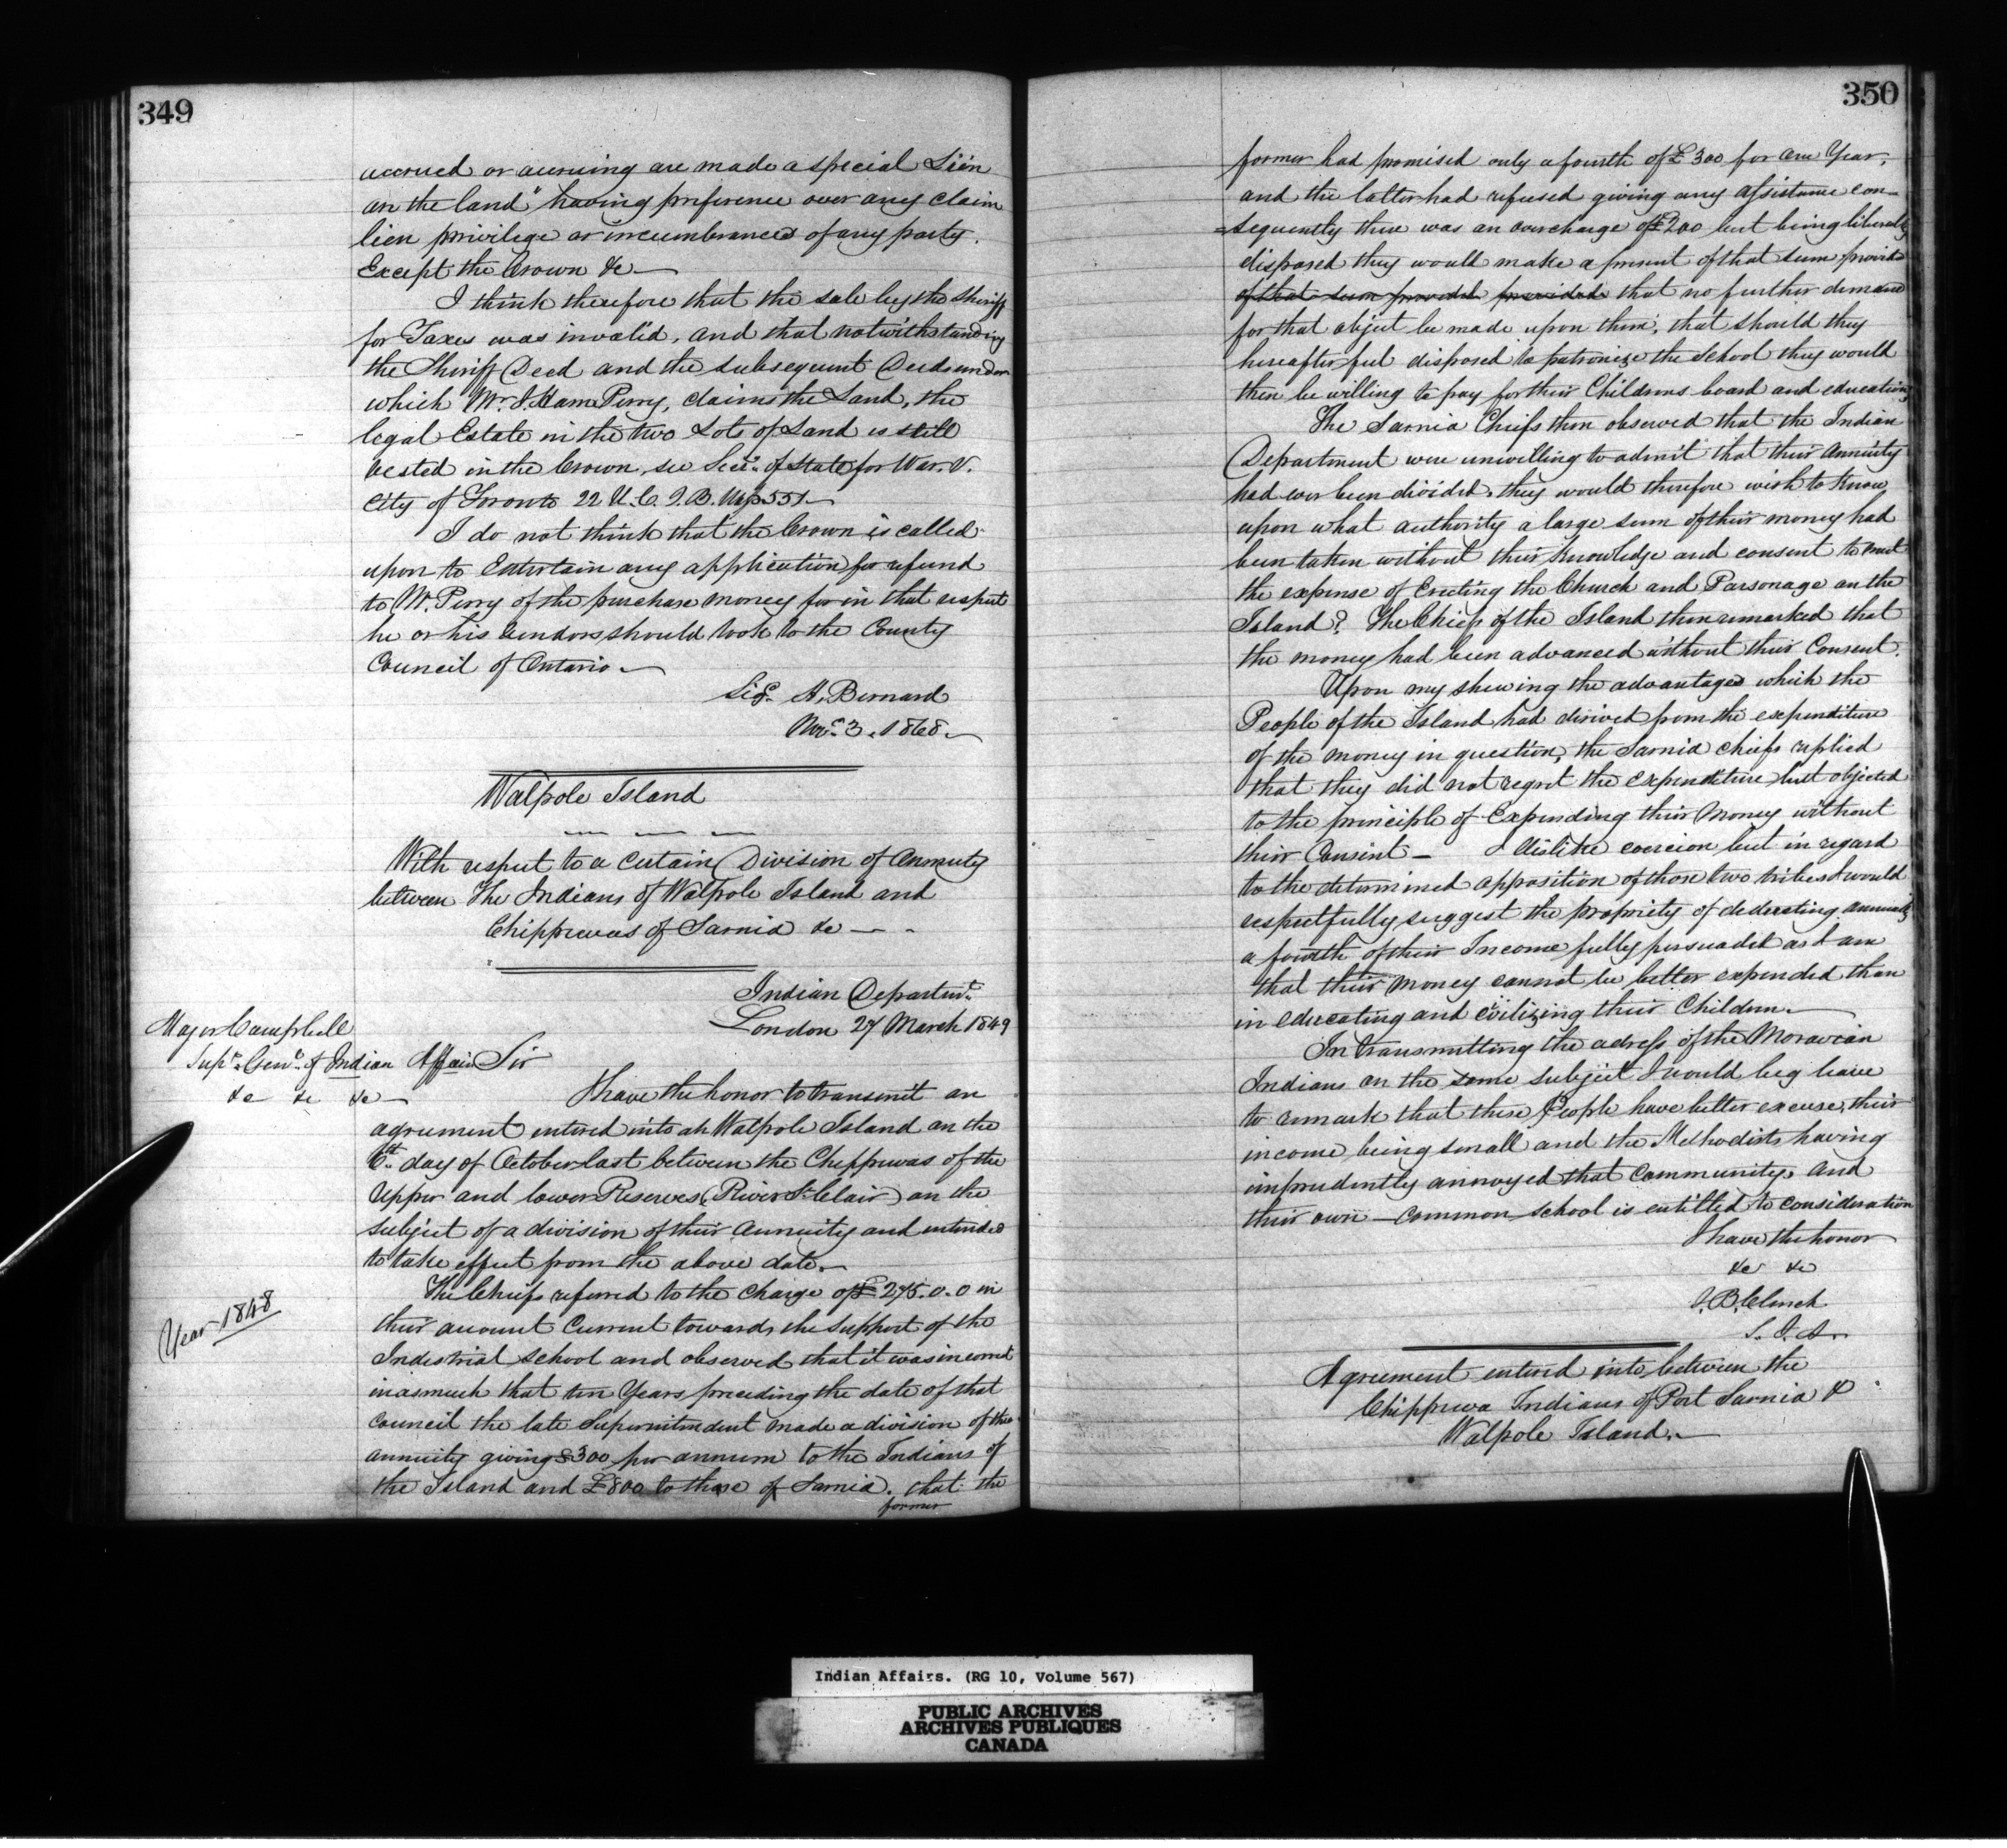 349
accrued or accruing are made a special Lien
on the land" having preference over any claim
lien privilege or incumbrances of any party.
Except the Crown &c —
I think therefore that the sale by the Sheriff
for Taxes was invalid, and that notwithstanding
the Sheriff Deed and the subsequent Deeds under
which Mr. J. Ham Perry, claims the Land, the
legal Estate in the two Lots of Land is still
vested in the Crown, see Secy. of State for War. V.
City of Toronto 22 U.C. Q.B. 551 —
I do not think that the Crown is called
upon to Entertain any application for refund
to Mr. Perry of the purchase money for in that respect
he or his vendors should look to the County
Council of Ontario —
Sigd. A. Bernard
Nov. 3. 1868 —
Walpole Island
With respect to a certain Division of Annuity
between The Indians of Walpole Island and
Chippewas of Sarnia &c — -
Indian Departmt.
London 27 March 1849
Major Campbell
Supt. Genl. of Indian Affairs
&c &c &c —
Sir
I have the honor to transmit an
agreement entered into at Walpole Island on the
6th. day of October last between the Cheppewas of the
Upper and lower Reserves (River St. Clair) on the
subject of a division of their Annuity and intended
to take effect from the above date. —
Year 1848
The Chiefs referred to the Charge of £275.0.0 in
their account Current towards the support of the
Industrial School and observed that it was incorrect
inasmuch that ten Years preceding the date of that
council the late Superintendent made a division of the
annuity giving £300 per annum to the Indians of
the Island and £800 to those of Sarnia. that the
former
350
former had promised only a fourth of £300 for one Year,
and the latter had refused giving any assistance con-
=sequently there was an overcharge of £200 but being liberally
disposed they would make a present of that sum provided
of that sum provided provided that no further demand
for that object be made upon them, that should they
hereafter feel disposed to patronize the School they would
then be willing to pay for their Childrens board and education,
The Sarnia Chiefs then observed that the Indian
Department were unwilling to admit that their Annuity
had ever been divided, they would therefore wish to know
upon what authority a large sum of their money had
been taken without their knowledge and consent to meet
the expense of Erecting the Church and Parsonage on the
Island? The Chiefs of the Island then remarked that
the money had been advanced without their Consent.
Upon my shewing the advantages which the
People of the Island had derived from the expenditure
of the money in question, the Sarnia chiefs replied
that they did not regret the expenditure but objected
to the principle of Expending their Money without
their Consent — I dislike coercion but in regard
to the determined opposition of those two tribes I would
respectfully suggest the propriety of deducting annually
a fourth of their Income fully persuaded as I am
that their money cannot be better expended than
in educating and civilizing their Children. —
In transmitting the adress of the Moravian
Indians on the same subject I would beg leave
to remark that these People have better excuse, their
income being small and the Methodists having
imprudently annoyed that Community, and
their own — common school is entitled to consideration
I have the honor
&c &c
J. B. Clench
S. I. A.
Agreement entered into between the
Chippewa Indians of Port Sarnia &
Walpole Island. —
Indian Affairs. (RG 10, Volume 567)
PUBLIC ARCHIVES
ARCHIVES PUBLIQUES
CANADA